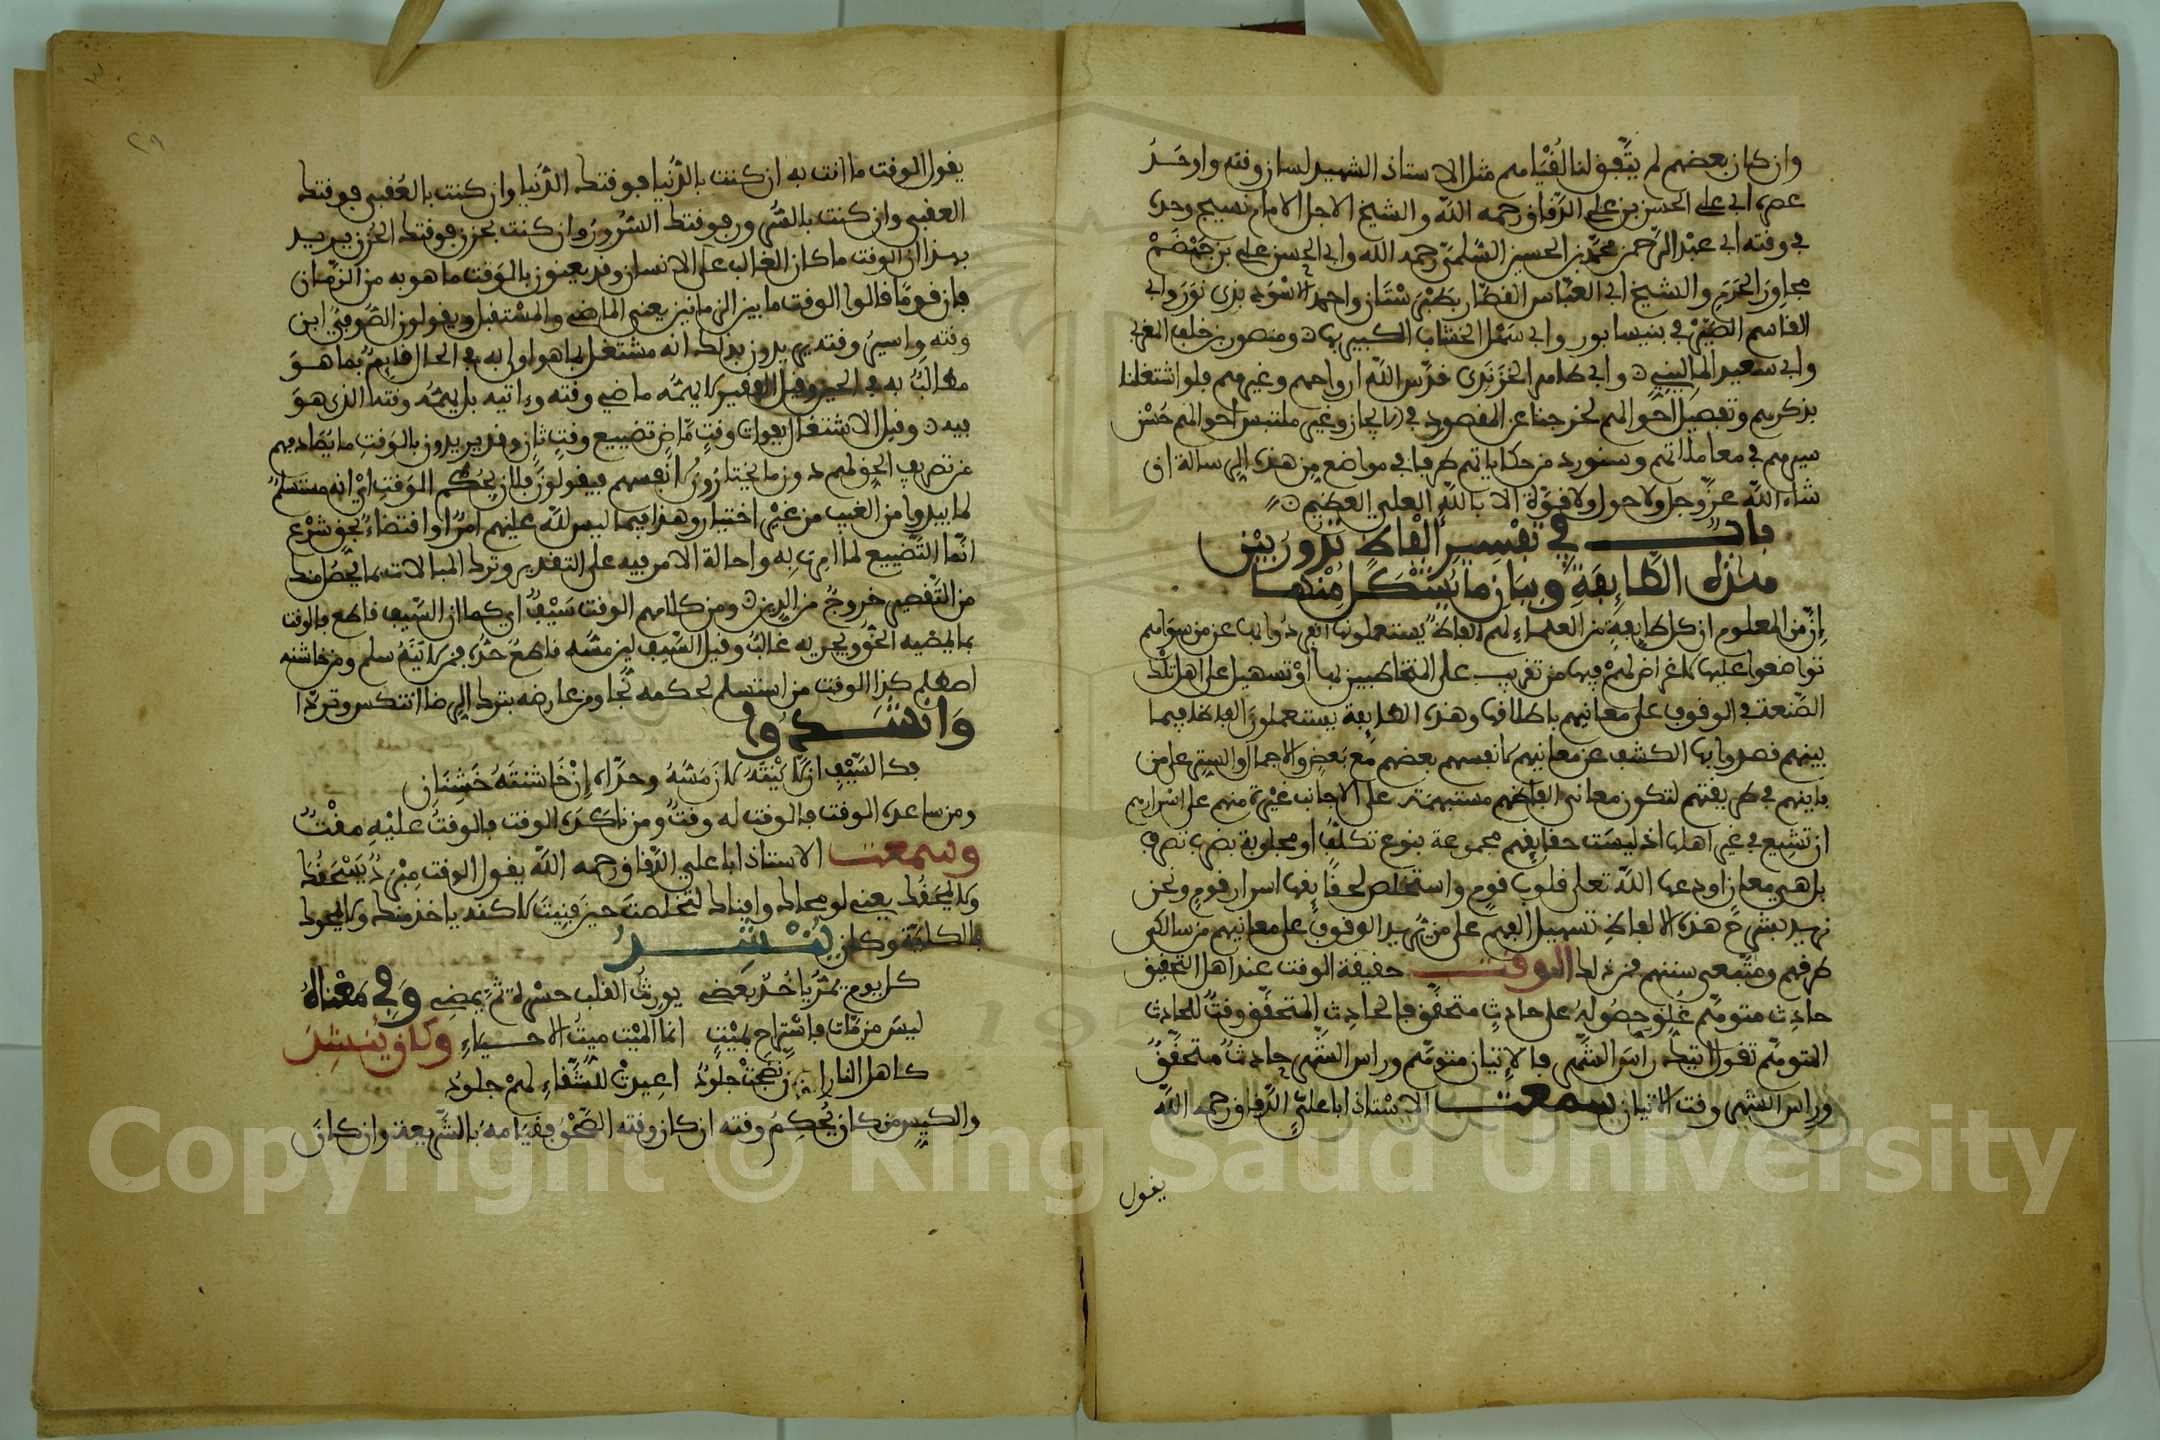 وان كان بعضهم لم يتفق لنا لقياهم مثل الاستاذ الشهيد لسان وقته واوحد
عصره ابي علي الحسن بن علي الدقاق رحمه الله والشيخ الاجل الامام نسيج وحده
في وقته ابي عبد الرحمن محمد بن الحسين السلمي رحمه الله وابي الحسن علي بن جهضم
مجاور الحرم والشيخ ابي العباس القصار بطبرستان واحمد الاسود بدينور وابي
القاسم الصيرفي بنيسابور وابي سهل الخشاب الكبير بها ومنصور بن خلف المغربي
وابي سعيد الماليني وابي طاهر الخزندي قدس الله ارواحهم وغيرهم فلو اشتغلنا
بذكرهم وتفصيل احوالهم لخرجنا عن المقصود في الايجاز وغير ملتبس احوالهم حسن
سيرهم في معاملاتهم وسنورد من حكاياتهم طرفا في مواضع من هذه الرسالة ان
شاء الله عز وجل ولا حول ولا قوة الا بالله العلي العظيم
باب في تفسير الفاظ تدور بين
هذه الطايفة وبيان ما يشكل منها
ان من المعلوم ان كل طايفة من العلماء لهم الفاظ يستعملونها انفردوا بها عن من سواهم
تواضعوا عليها لاغراض لهم فيها من تقريب على المتخاطبين بها او تسهيل على اهل تلك
الصنعة في الوقوف على معانيهم باطلاقها وهذه الطايفة يستعملون الفاظا فيما
بينهم قصدوا بها الكشف عن معانيهم لانفسهم بعضهم مع بعض والاجمال والستر على من
باينهم في طريقتهم لتكون معاني الفاظهم مستبهمة على الاجانب غيرة منهم على اسرارهم
ان تشيع في غير اهلها اذ ليست حقايقهم مجموعة بنوع تكلف او مجلوبة بضرب تصرف
بل هي معان اودعها الله تعلى قلوب قوم واستخلص لحقايقها اسرار قوم ونحن
نريد بشرح هذه الالفاظ تسهيل الفهم على من يريد الوقوف على معانيهم من سالكي
طرقهم ومتبعي سننهم فمن ذلك الوقت حقيقة الوقت عند اهل التحقيق
حادث متوهم علق حصوله على حادث متحقق فالحادث المتحقق وقت للحادث
المتوهم تقول اتيك راس الشهر فالاتيان متوهم وراس الشهر حادث متحقق
وراس الشهر وقت الاتيان سمعت الاستاذ ابا علي الدقاق رحمه الله
يقول
٢٩
يقول الوقت ما انت به ان كنت بالدنيا فوقتك الدنيا وان كنت بالعقبى فوقتك
العقبى وان كنت بالسرور فوقتك السرور وان كنت بحزن فوقتك الحزن يريد
بهذا ان الوقت ما كان الغالب على الانسان وقد يعنون بالوقت ما هو به من الزمان
فان قوما قالوا الوقت ما بين الزمانين يعني الماضي والمستقبل ويقولون الصوفي ابن
وقته واسير وقته يريدون بذلك انه مشتغل بما هو اولى به في الحال قايم بما هو
مطالب به في الحين وقيل الفقير لا يهمه ماضي وقته وءاتيه بل يهمه وقته الذي هو
فيه وقيل الاشتغال بفوات وقت ماض تضييع وقت ثان وقد يريدون بالوقت ما يصادفهم
من تصريف الحق لهم دون ما يختارون لانفسهم فيقولون فلان بحكم الوقت اي انه مستسلم
لما يبدوا من الغيب من غير اختيار وهذا فيما ليس لله عليهم امر او اقتضاء بحق شرع
انما التضييع لما امرت به واحالة الامر فيه على التقدير وترك المبالات بما يحصل منك
من التقصير خروج من الدين ومن كلامهم الوقت سيف اي كما ان السيف قاطع فالوقت
بما يمضيه الحق ويجريه غالب وقيل السيف لين مسه قاطع حده فمن لاينه سلم ومن خاشنه
اصطلم كذا الوقت من استسلم لحكمه نجا ومن عارضه بترك الرضا انتكس وتردا
وانشدوا
فكالسيف ان لاينته لان مسه وحداه ان خاشنته خشنان
ومن ساعده الوقت فالوقت له وقت ومن ناكده الوقت فالوقت عليه مقت
وسمعت الاستاذ ابا علي الدقاق رحمه الله يقول الوقت مبرد يسحقك
ولا يمحقك يعني لو محاك وافناك لتخلصت حين فنيت لاكنه ياخذ منك ولا يمحوك
بالكلية وكان ينشد
كل يوم يمر ياخذ بعضي يورث القلب حسرة ثم يمضي وفي معناه
ليس من مات فاستراح بميت انما الميت ميت الاحياء وكان ينشد
كاهل النار ان نضجت جلود اعيدت للشقاء لهم جلود
والكيس من كان بحكم وقته ان كان وقته الصحو فقيامه بالشريعة وان كان
Copyright © King Saud University